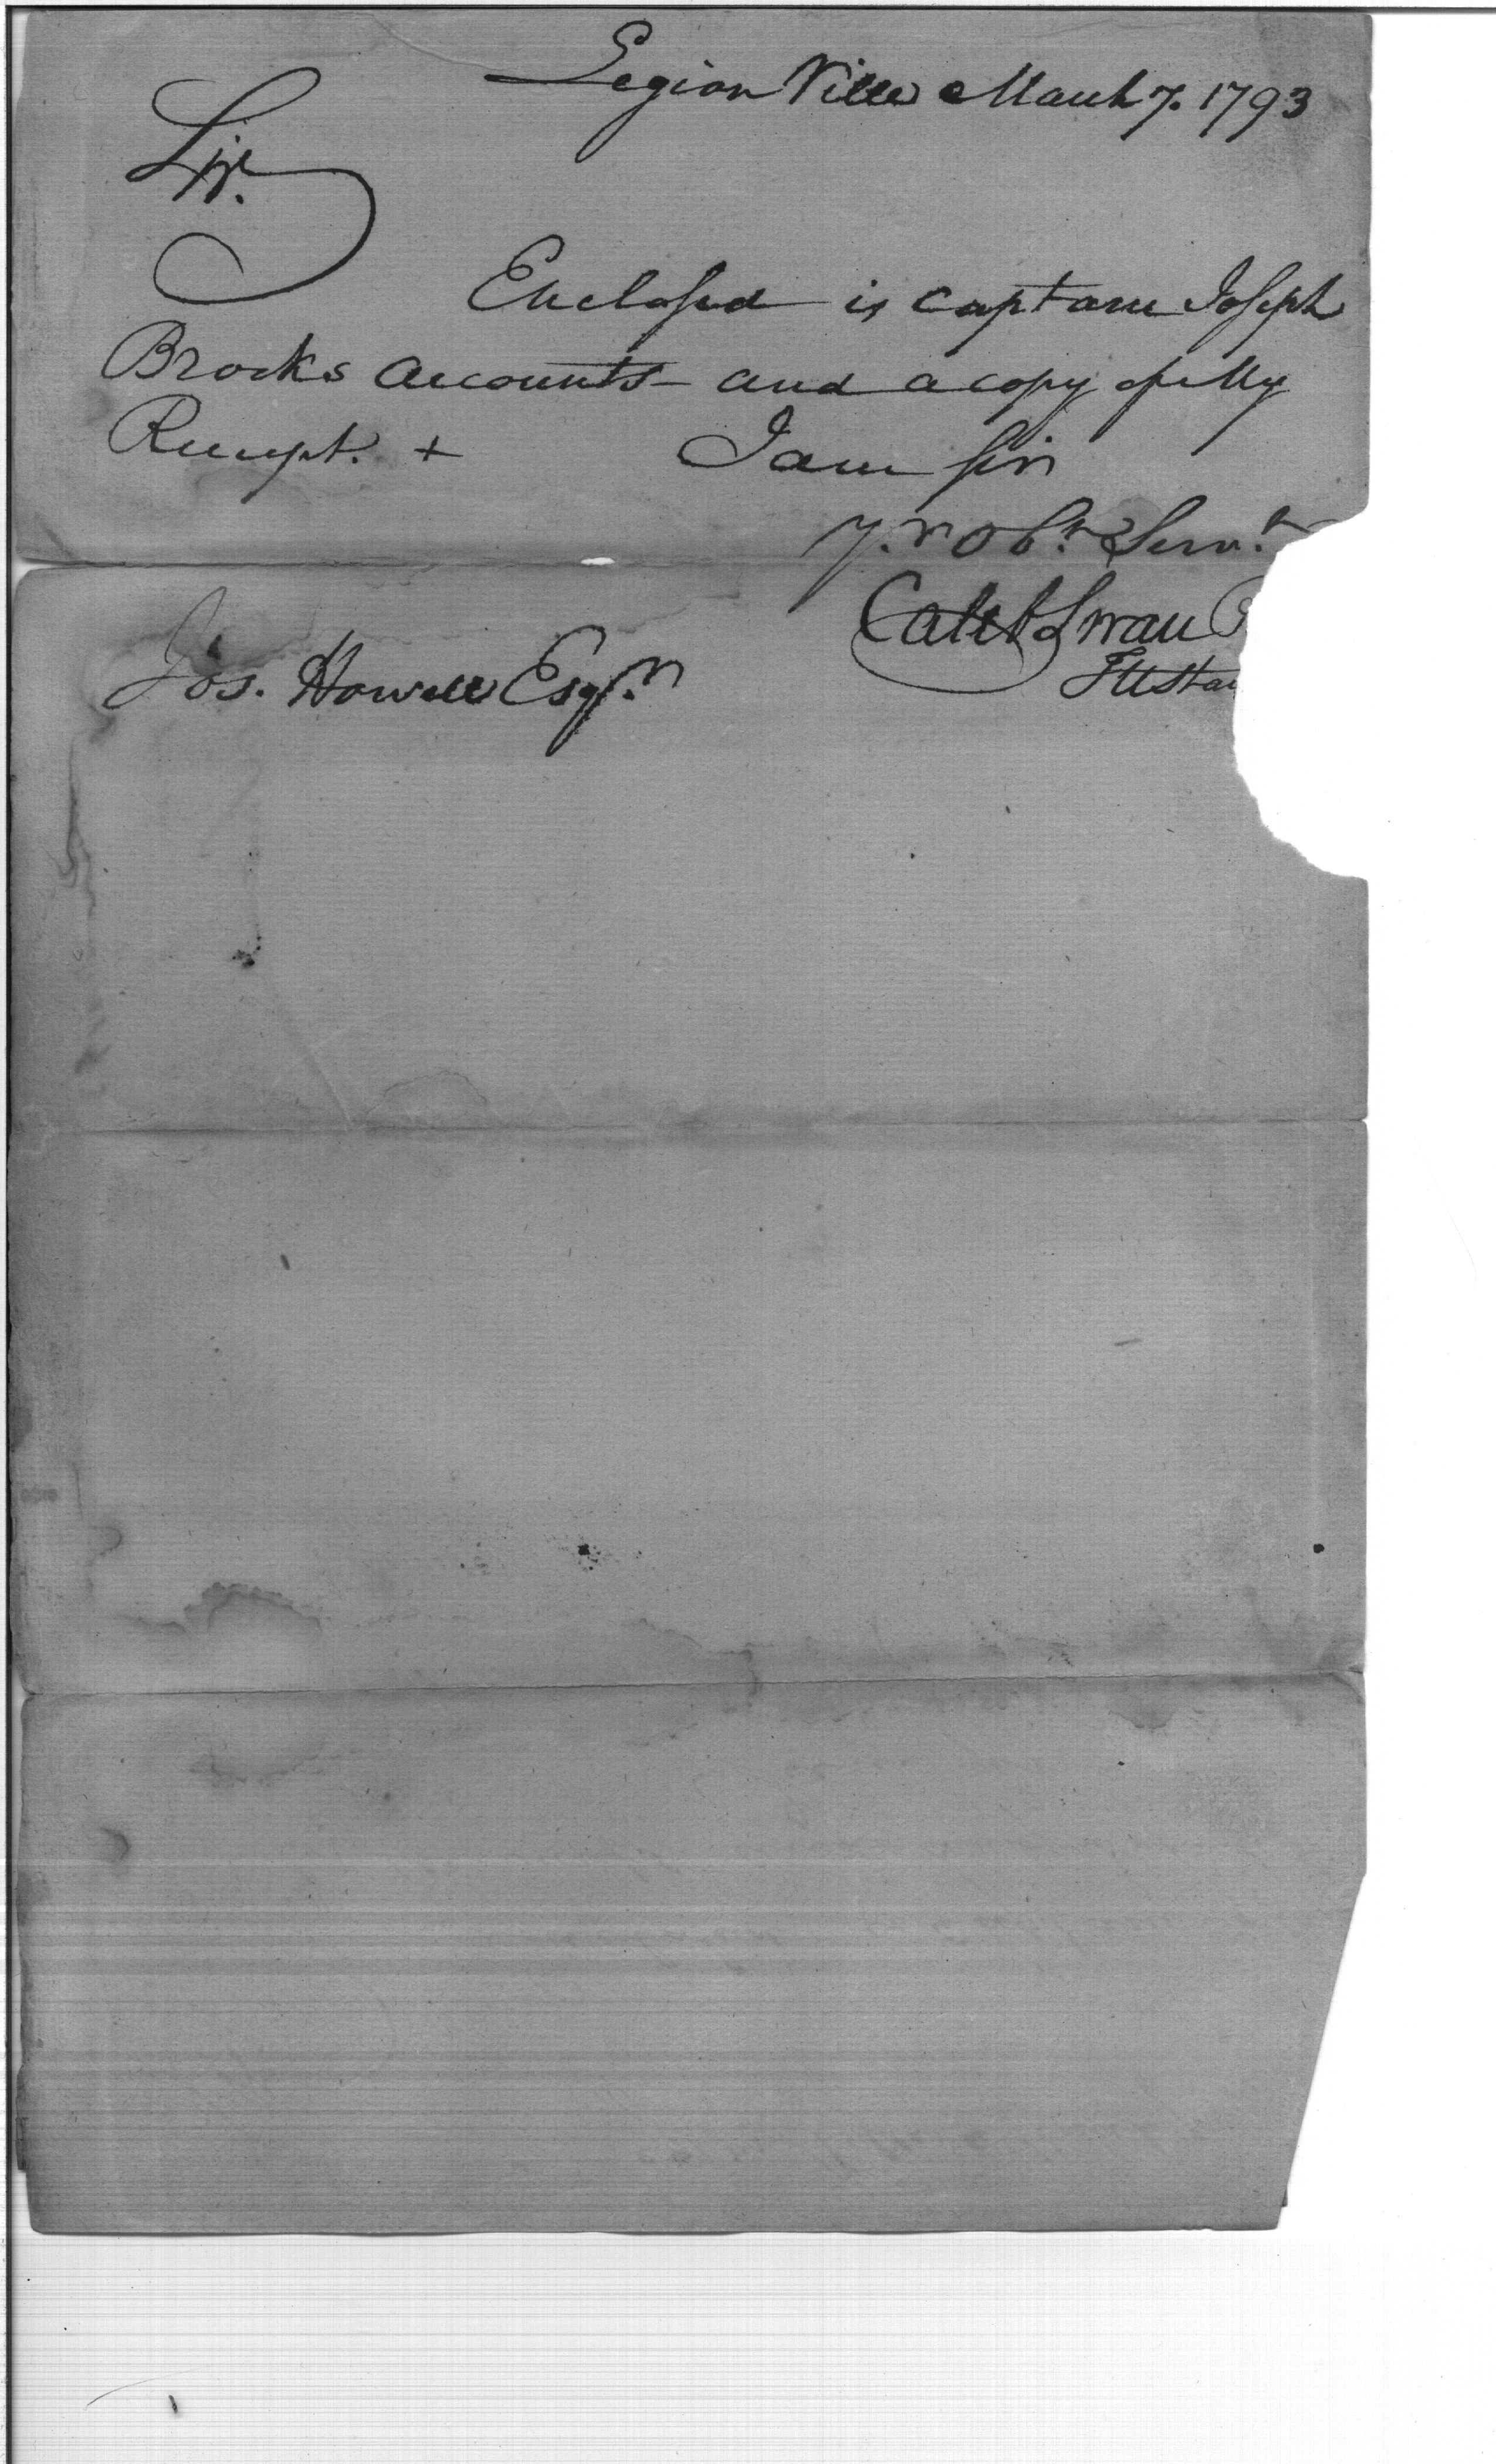 Legion Ville March 7. 1793
Sir.
Enclosed is captain Joseph
Brocks accounts and a copy of my
Receipt. +            I am Sir
y.r Ob.t Serv.t
Caleb Swan P
Jos. Howell Esqr.